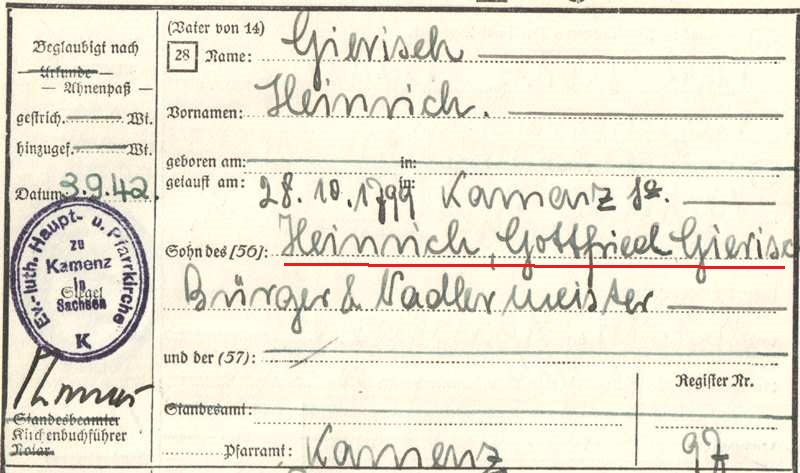 (Vater von 14)
28 Name: Gierisch
Vornamen: Heinrich.
geboren am: in:
getauft am: 28.10.1799 in: Kamenz Sa.
Sohn des [56]: Heinrich, Gottfried Gierisc
Bürger & Nadlermeister
und der (57):
Standesamt:
Register Nr.
Pfarramt: Kamenz 97
Beglaubigt nach
Urkunde —
— Ahnenpaß —
gestrich. Wt.
hinzugef. Wt.
Datum: 3.9.42.
Ev.-luth. Haupt- u. Pfarrkirche
zu
Kamenz
in
Siegel
Sachsen
K
Standesbeamter
Kirchenbuchführer
Notar